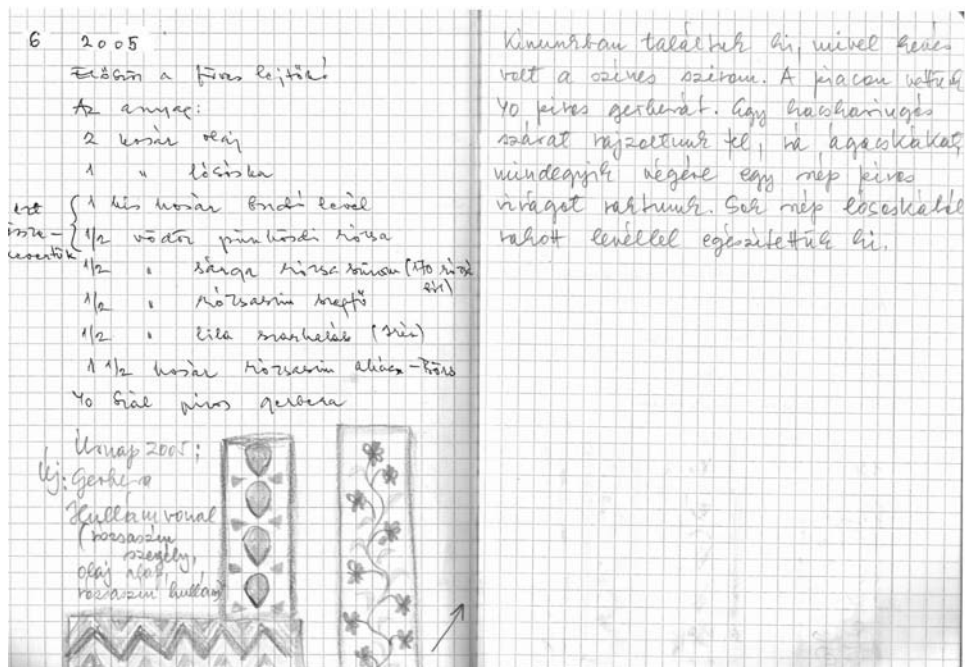 6 2005
Először a füves lejtők!
Az anyag:
2 kosár olaj
1 " lósóska
1 kis kosár bodó levél
ezt össze-kevertük
1/2 vödör pünkösdi rózsa
1/2 " sárga rózsa szirom (170 rózsa
1/2 " rózsaszín szegfű
1/2 " lila szarkaláb (
1 1/2 kosár rózsaszín akácz -
40 szál piros gerbera
Úrnap 2005;
Új: Gerbera
Hullám vonal
(rózsaszín
szegély,
olaj alap,
rózsaszín hullám)
Kínunkban találtuk ki, mivel kevés
volt a színes szirom. A piacon vettünk
40 piros gerberát. Egy kacskaringós
szárat rajzoltunk fel, rá ágacskákat,
mindegyik végére egy szép piros
virágot raktunk. Sok szép lósóskából
rakott levéllel egészítettük ki.